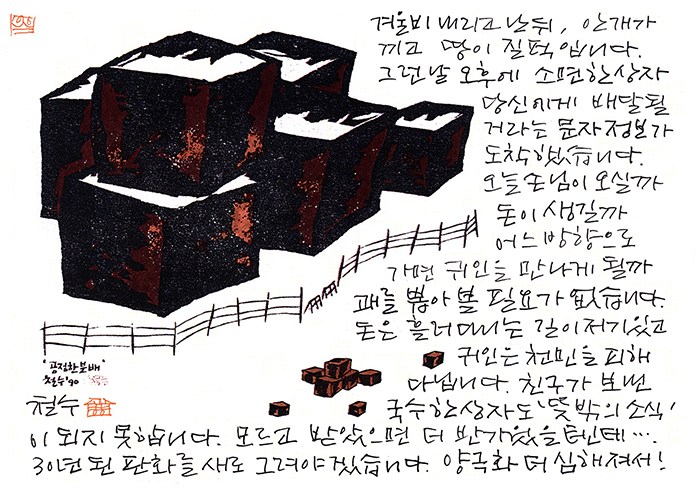 겨울비 내리고 난 뒤, 안개가
끼고 땅이 질퍽입니다.
그런날 오후에 소면한상자
당신에게 배달될
거라는 문자정보가
도착했습니다.
오늘 손님이 오실까
돈이 생길까
어느 방향으로
가면 귀인을 만나게 될까
패를 뽑아 볼 필요가 없습니다.
돈은 흘러다니는 길이 저기 있고
귀인은 천민을 피해
다닙니다. 친구가 보낸
국수한상자도 '뜻밖의 소식'
이 되지 못합니다. 모르고 받았으면 더 반가웠을텐데….
30년된 판화를 새로 그려야겠습니다. 양극화 더 심해져서!
'공정한 분배'
철수 '90
철수